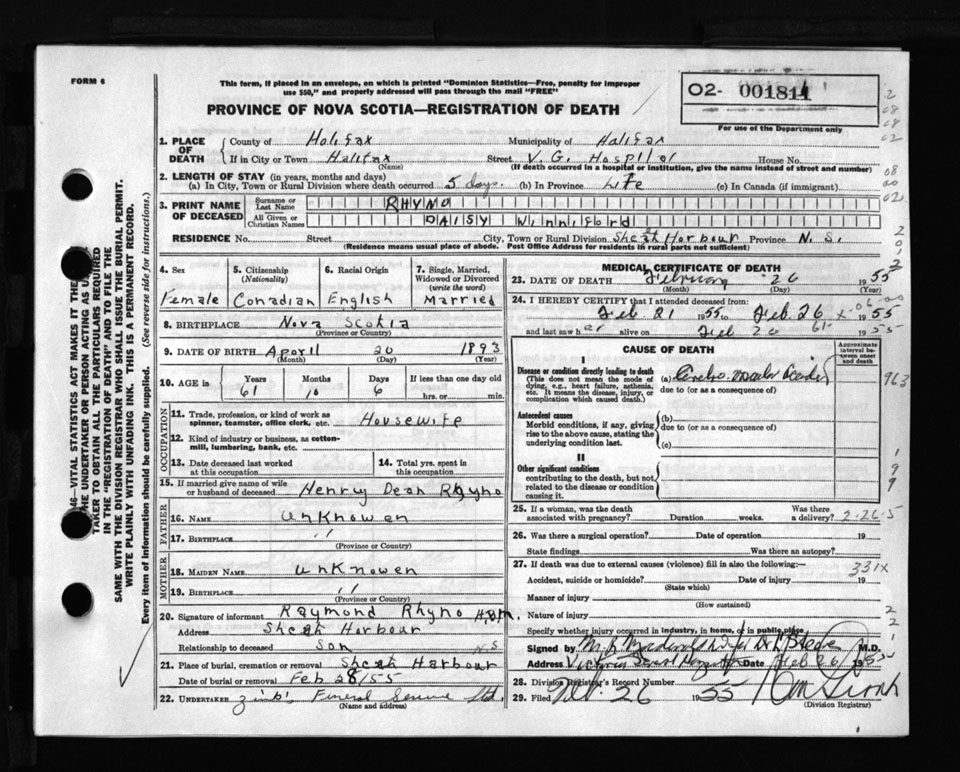 FORM 6
This form, if placed in an envelope, on which is printed "Dominion Statistics—Free, penalty for improper
use $50," and properly addressed will pass through the mail "FREE"
PROVINCE OF NOVA SCOTIA—REGISTRATION OF DEATH
O2- 001811
For use of the Department only
1. PLACE OF DEATH
County of Halifax Municipality of Halifax
If in City or Town Halifax Street V. G. Hospital House No.
(Name) (If death occurred in a hospital or institution, give the name instead of street and number)
2. LENGTH OF STAY (in years, months and days)
(a) In City, Town or Rural Division where death occurred 5 days. (b) In Province Life (c) In Canada (if immigrant)
3. PRINT NAME OF DECEASED
Surname or Last Name RHYNO
All Given or Christian Names DAISY Winniford
RESIDENCE No. Street City, Town or Rural Division Harbour Province N. S.
(Residence means usual place of abode. Post Office Address for residents in rural parts not sufficient)
4. Sex
Female
5. Citizenship (Nationality)
Canadian
6. Racial Origin
English
7. Single, Married, Widowed or Divorced (write the word)
Married
8. BIRTHPLACE Nova Scotia
(Province or Country)
9. DATE OF BIRTH 20 1893
(Month) (Day) (Year)
10. AGE in
Years 61 Months 10 Days 6 If less than one day old
hrs. or min.
OCCUPATION
11. Trade, profession, or kind of work as spinner, teamster, office clerk, etc. Housewife
12. Kind of industry or business, as cotton-mill, lumbering, bank, etc.
13. Date deceased last worked at this occupation
14. Total yrs. spent in this occupation
15. If married give name of wife or husband of deceased Henry Dean Rhyno
FATHER
16. NAME unKnowen
17. BIRTHPLACE ''
(Province or Country)
MOTHER
18. MAIDEN NAME unKnowen
19. BIRTHPLACE ''
(Province or Country)
20. Signature of informant Raymond Rhyno
Address Harbour
Relationship to deceased Son N.S
21. Place of burial, cremation or removal Harbour
Date of burial or removal Feb 28/55
22. UNDERTAKER Funeral Service Ltd.
(Name and address)
MEDICAL CERTIFICATE OF DEATH
23. DATE OF DEATH February 26 1955
(Month) (Day)
24. I HEREBY CERTIFY that I attended deceased from:
Feb 21 1955 to Feb. 26 1955
and last saw her alive on Feb 26 1955
CAUSE OF DEATH
Approximate interval between onset and death
I
Disease or condition directly leading to death
(This does not mean the mode of dying, e.g., heart failure, asthenia, etc. It means the disease, injury, or complication which caused death.)
(a)
due to (or as a consequence of)
Antecedent causes
Morbid conditions, if any, giving rise to the above cause, stating the underlying condition last.
(b)
due to (or as a consequence of)
(c)
II
Other significant conditions
contributing to the death, but not related to the disease or condition causing it.
25. If a woman, was the death associated with pregnancy? Duration weeks. Was there a delivery? 2-26-5
26. Was there a surgical operation? Date of operation 19
State findings Was there an autopsy?
27. If death was due to external causes (violence) fill in also the following:— 331X
Accident, suicide or homicide? Date of injury 19
(State which)
Manner of injury
(How sustained)
Nature of injury
Specify whether injury occurred in industry, in home, or in public place
Signed by M.D.
Address Victoria General Date Feb 26 1955
28. Division Registrar's Record Number
29. Filed 26 1955
(Division Registrar)
46—VITAL STATISTICS ACT MAKES IT THE
THE UNDERTAKER OR PERSON ACTING AS UNDER-
TAKER TO OBTAIN ALL THE PARTICULARS REQUIRED
IN THE "REGISTRATION OF DEATH" AND TO FILE THE
SAME WITH THE DIVISION REGISTRAR WHO SHALL ISSUE THE BURIAL PERMIT.
WRITE PLAINLY WITH UNFADING INK. THIS IS A PERMANENT RECORD.
Every item of information should be carefully supplied. (See reverse side for instructions.)